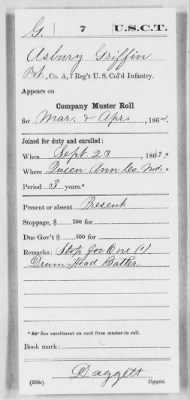 G | 7 | U.S.C.T.
Asbury Griffin
Pvt, Co. A, 7 Reg't U. S. Col'd Infantry.
Appears on
Company Muster Roll
for Mar. & Apr., 1864.
Joined for duty and enrolled:
When Sept. 23, 1863.*
Where Queen Ann Co. Md.*
Period 3 years.*
Present or absent Present
Stoppage, $ 100 for
Due Gov't $ 100 for
Remarks: Stop for One (1)
Drum Head Batter
* See enrollment on card from muster-in roll.
Book mark:
Daggett
(358c) Copyist.